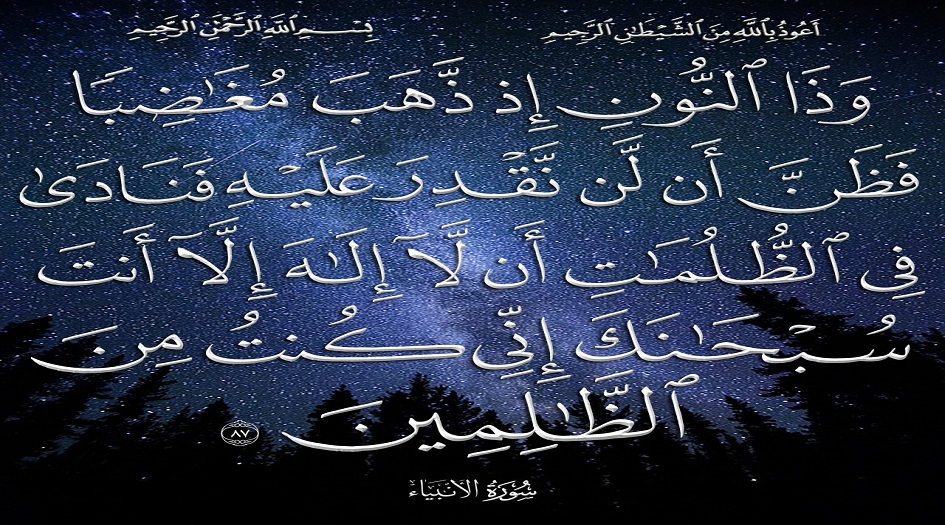 اَعُوذُ بِاللَّهِ مِنَ الشَّيْطَانِ الرَّجِيمِ بِسْمِ اللَّهِ الرَّحْمَٰنِ الرَّحِيمِ
وَذَا ٱلنُّونِ إِذ ذَّهَبَ مُغَٰضِبًا
فَظَنَّ أَن لَّن نَّقْدِرَ عَلَيْهِ فَنَادَىٰ
فِى ٱلظُّلُمَٰتِ أَن لَّآ إِلَٰهَ إِلَّآ أَنتَ
سُبْحَٰنَكَ إِنِّى كُنتُ مِنَ
ٱلظَّٰلِمِينَ ٨٧
سُورَةُ الأَنْبِيَاءِ